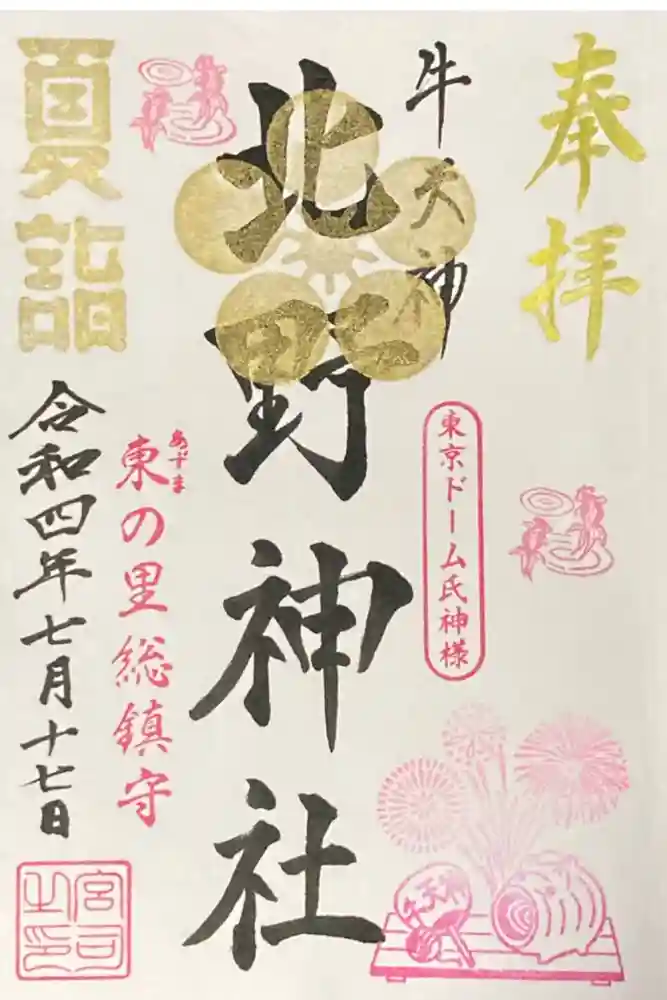 奉拝
牛天神
北野神社
東京ドーム氏神様
牛天神
夏詣
あずま
東の里総鎮守
令和四年七月十七日
宮司之印